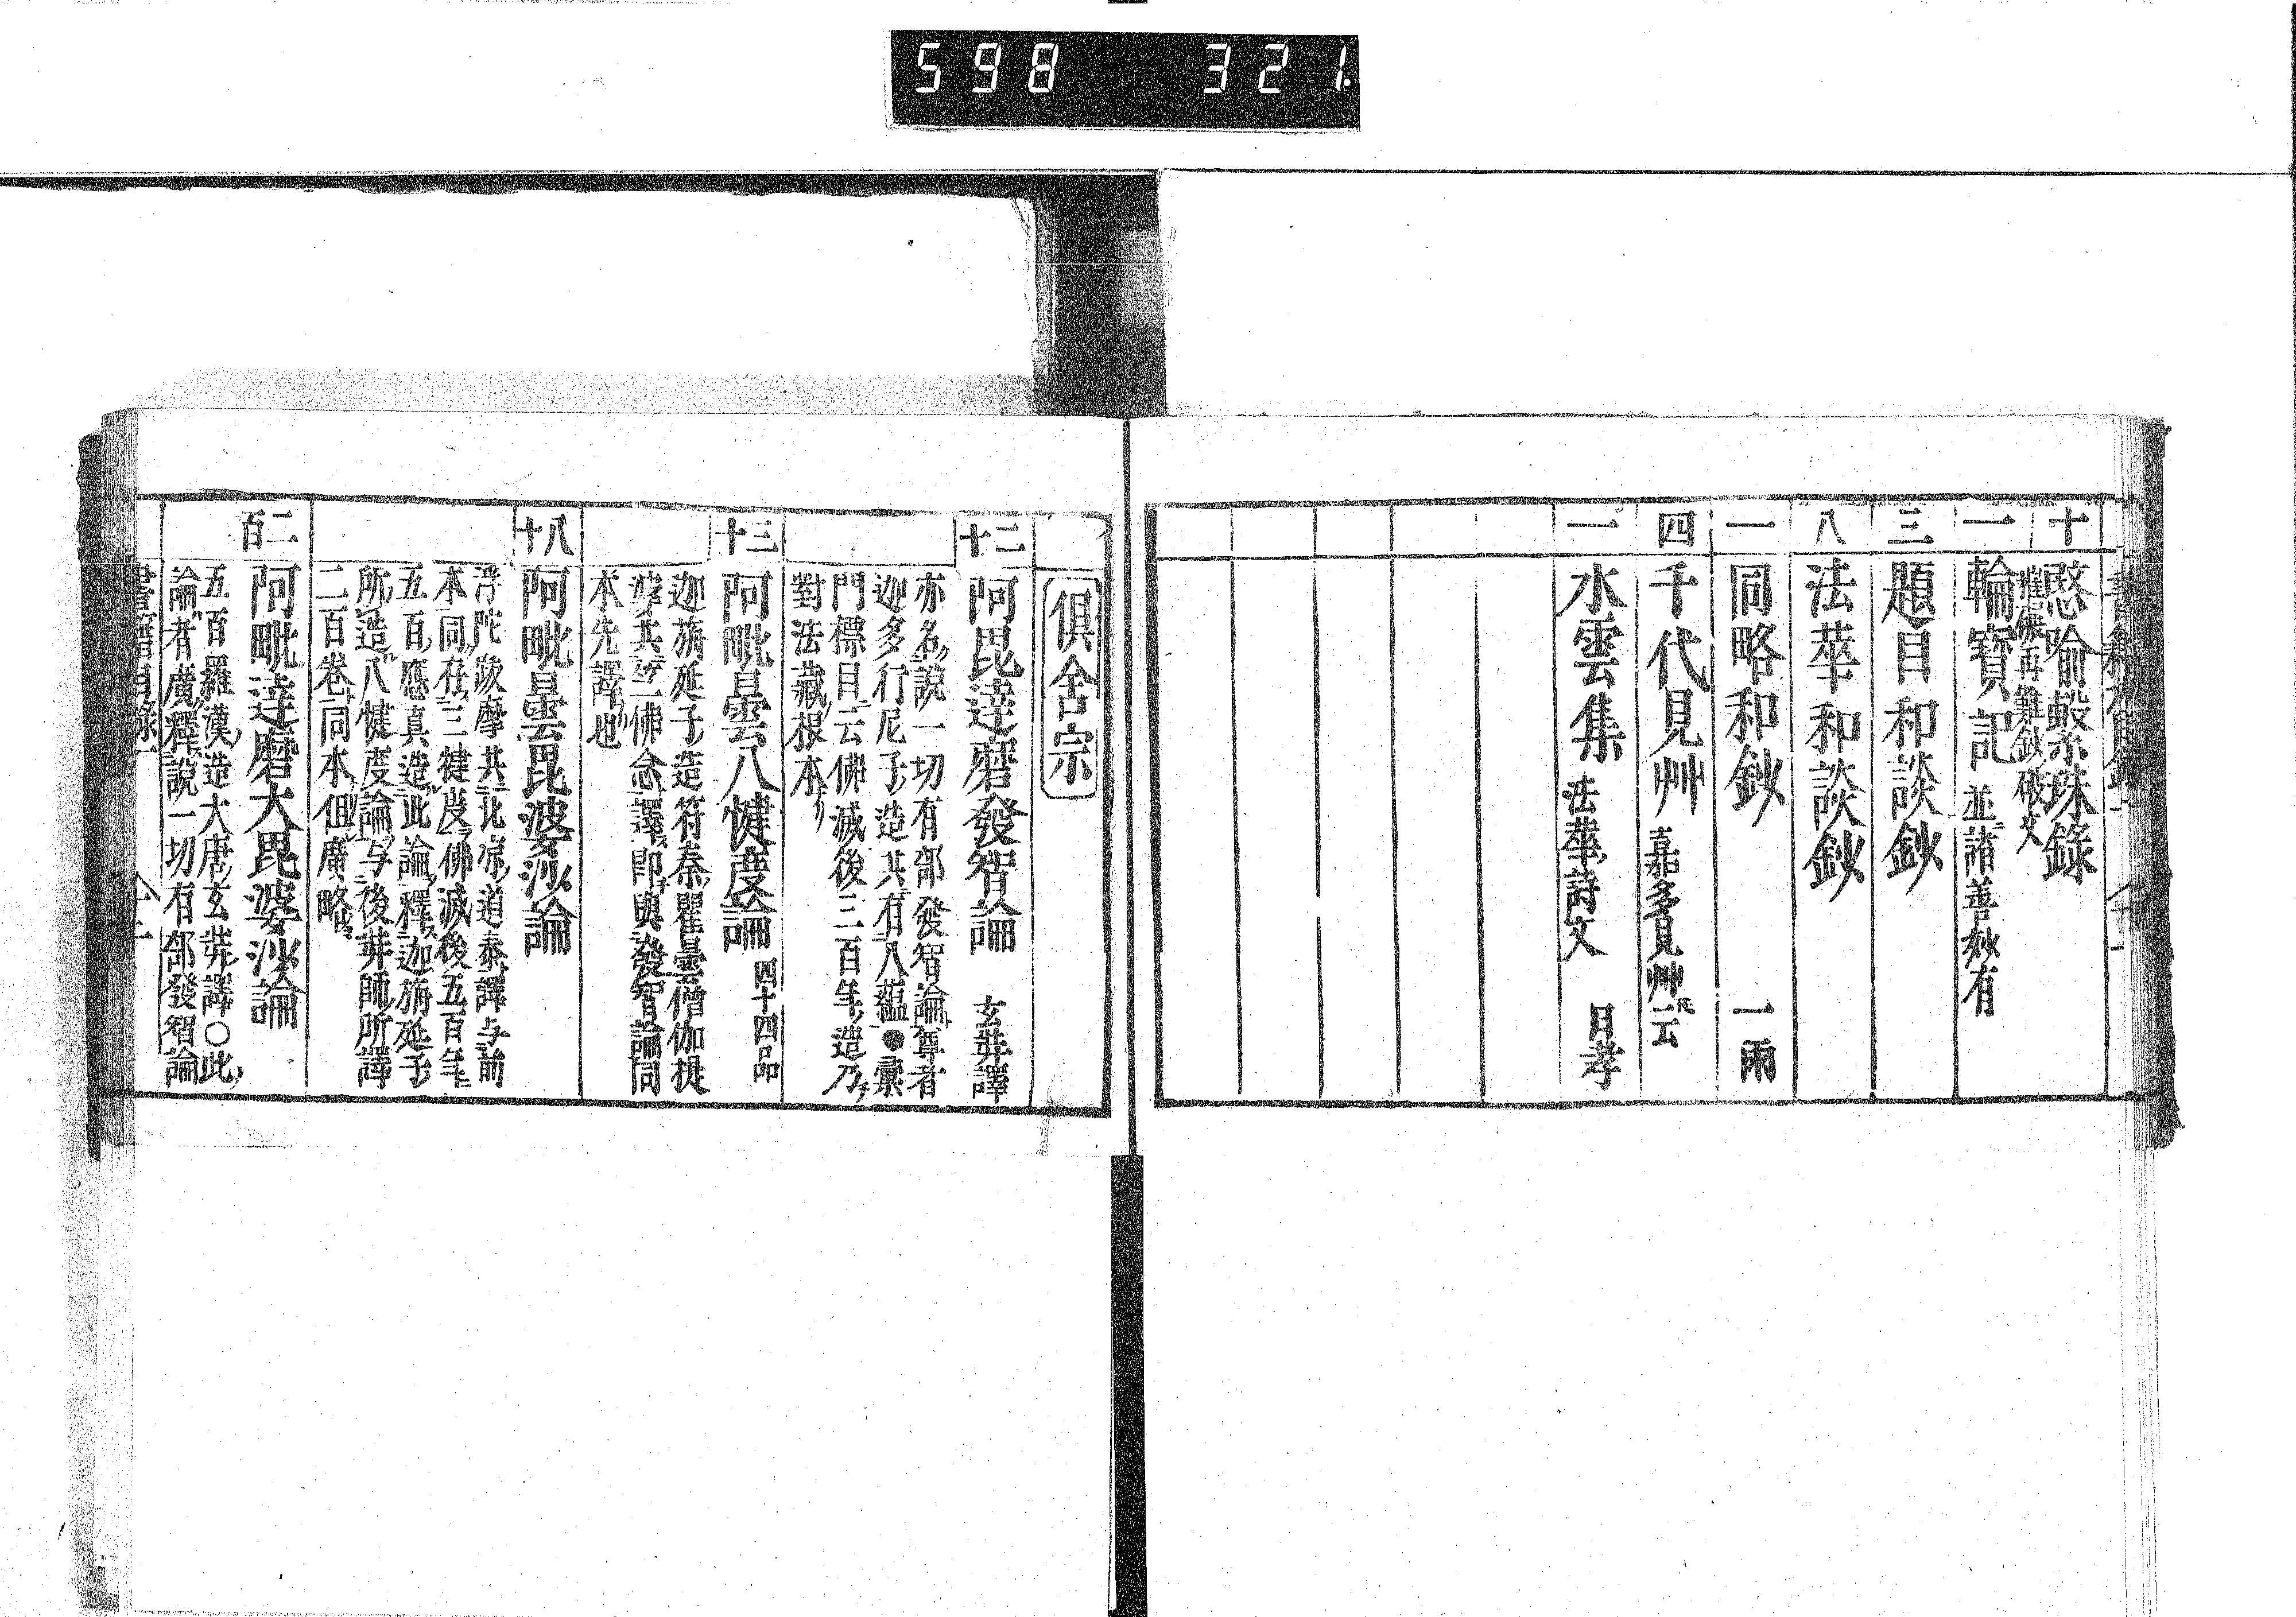 598 321.
十 愍喻繫珠錄
摧儂再難鈔破文
一 輪寶記 並諸善妙有
三 題目和談鈔
八 法華和談鈔
一 同略和鈔 一雨
四 千代見艸 嘉多見艸民云
一 水雲集 法華詩文 日孝
俱舍宗
二十 阿毘達磨發智論 玄奘譯
亦名說一切有部發智論尊者
迦多行尼子造其有八蘊●彙
門標目云佛滅後三百年造乃
對法藏根本
三十 阿毗曇八犍度論 四十四品
迦旃延子造符秦瞿曇僧伽提
婆共竺佛念譯即與發智論同
本先譯也
八十 阿毗曇毘婆沙論
浮陀跋摩共北凉道泰譯与前
本同在三犍度佛滅後五百年
五百應真造此論釋迦旃延子
所造八犍度論与後奘師所譯
二百卷同本但廣略
二百 阿毗達磨大毘婆沙論
五百羅漢造大唐玄奘譯○此
論者廣釋說一切有部發智論
書籍目錄一